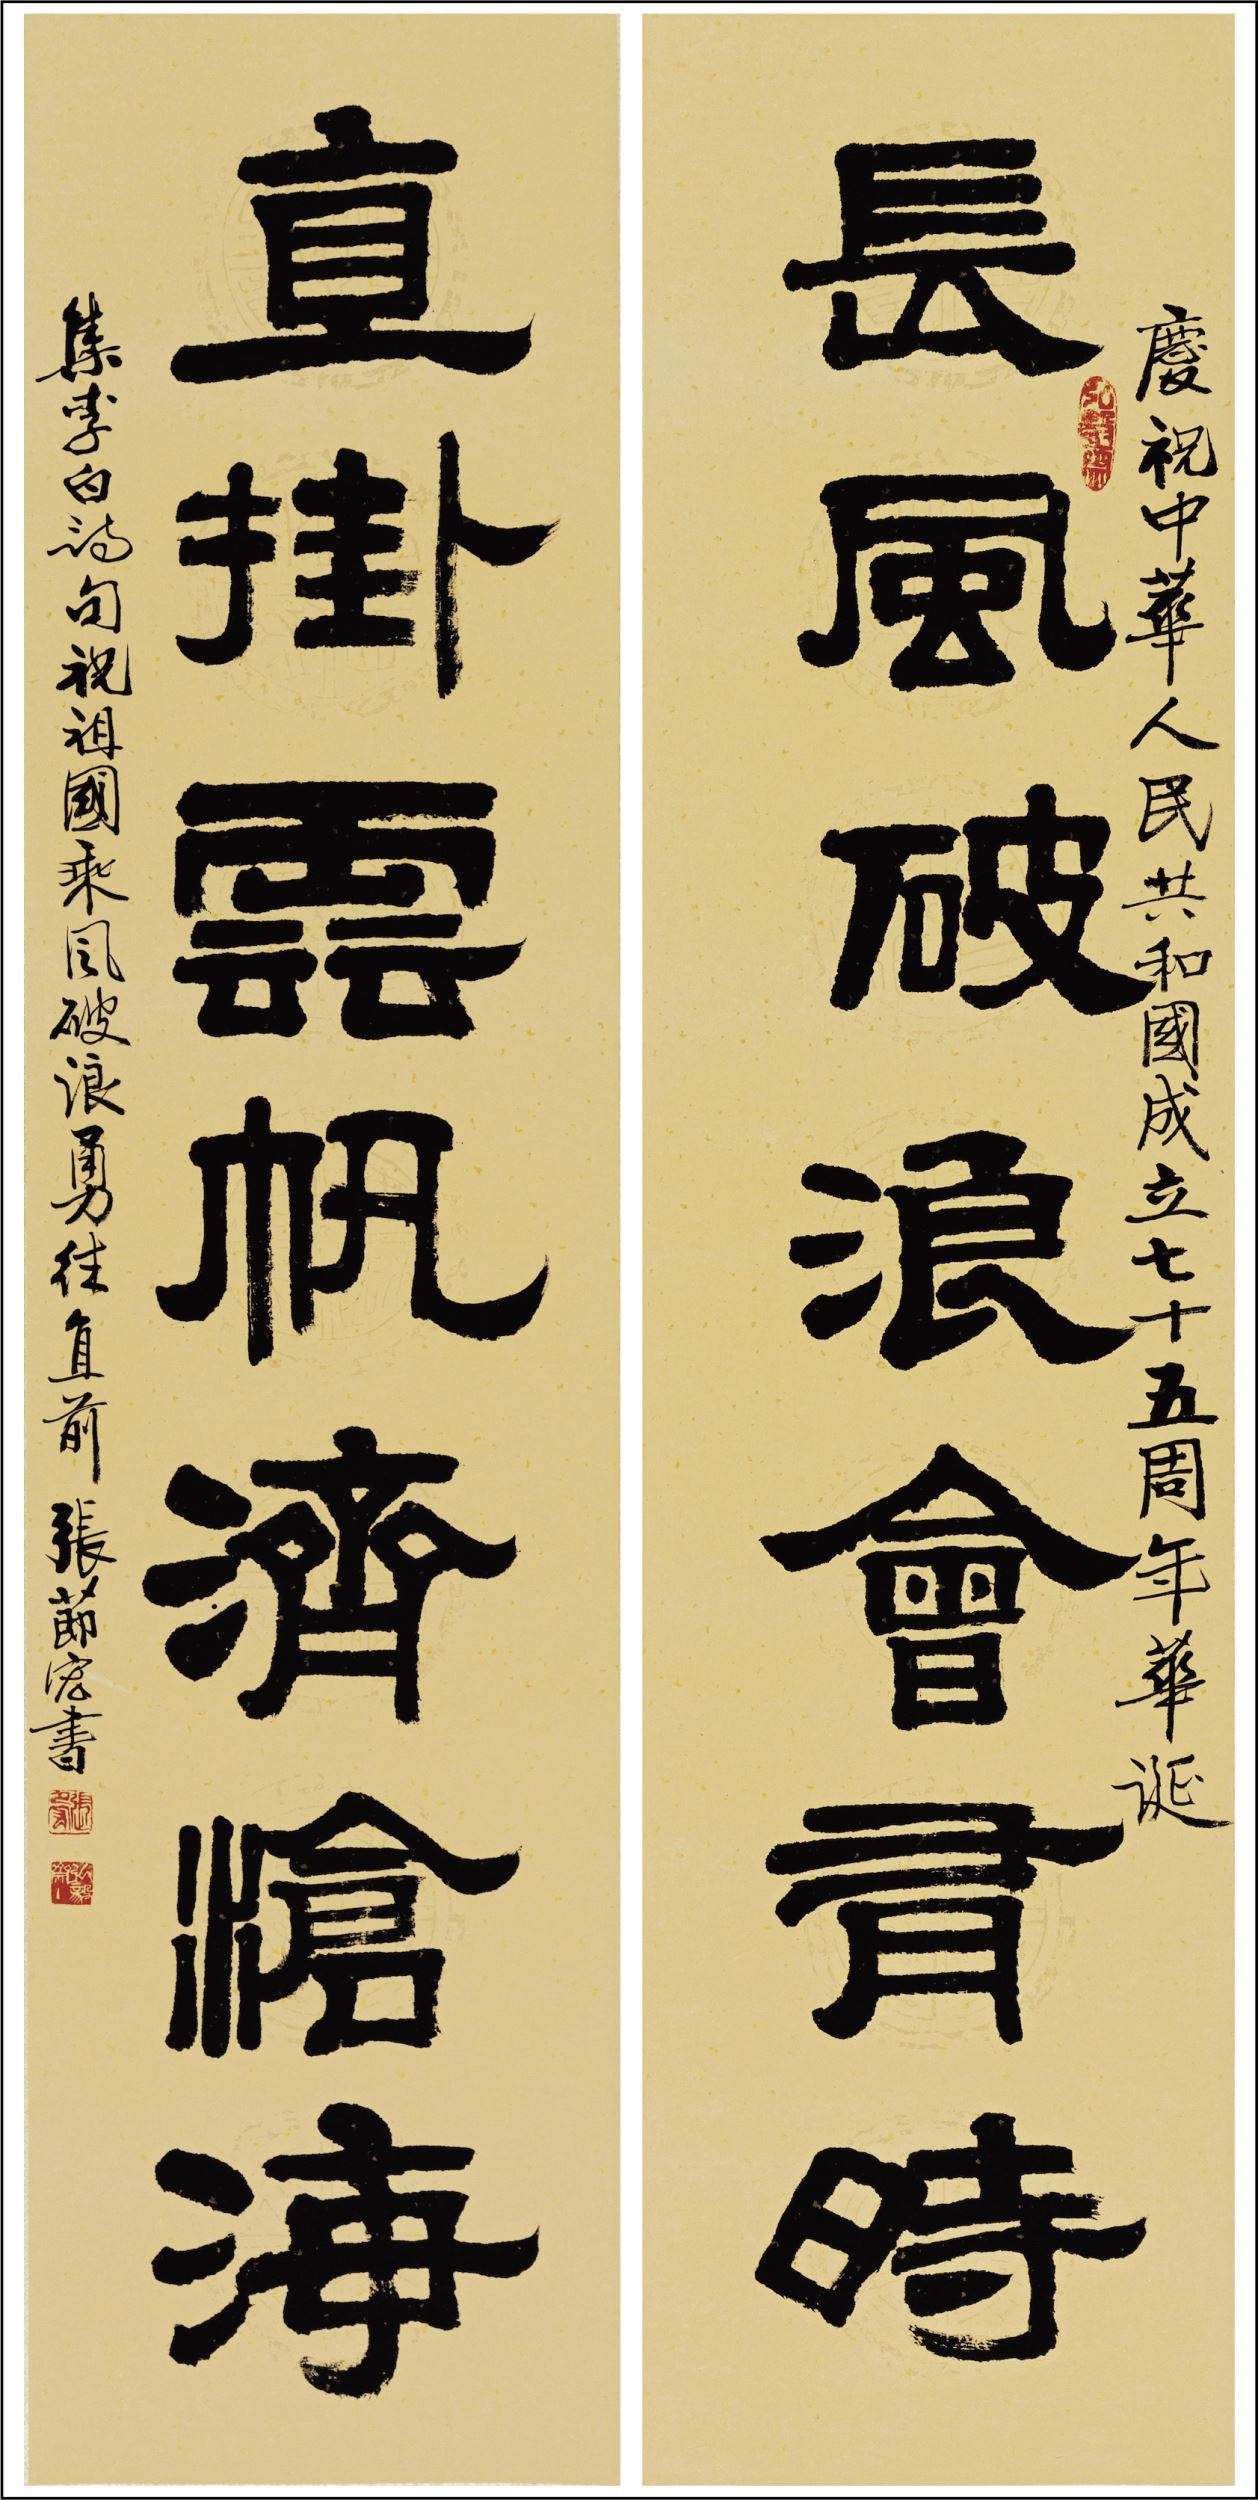 慶祝中華人民共和國成立七十五周年華誕
長風破浪會有時
直掛雲帆濟滄海
集李白詩句祝祖國乘风破浪勇往直前 張 宏書